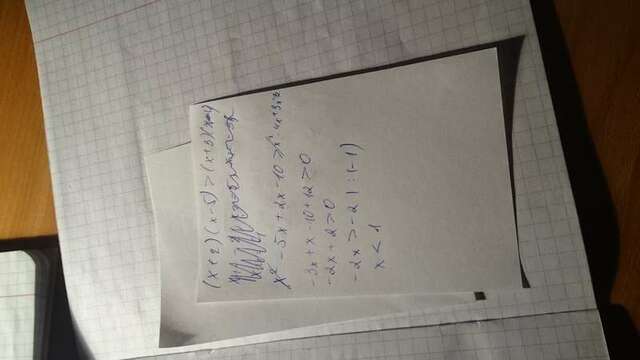 (x+2)(x-5)>(x+3)(x-4)
x² - 5x + 2x - 10 > x² - 4x + 3x
-3x + x - 10 + 12 > 0
-2x + 2 > 0
-2x > -2 | :(-1)
x < 1